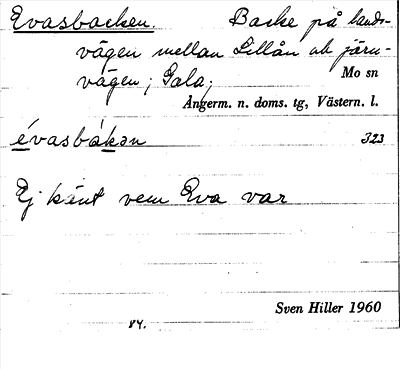 Evasbacken. Backe på lands-
vägen mellan Lillån och järn-
vägen; Sala; Mo sn
Ångerm. n. doms. tg, Västern. l.
évasbàkən 323
Ej känt vem Eva var
Sven Hiller 1960
84.